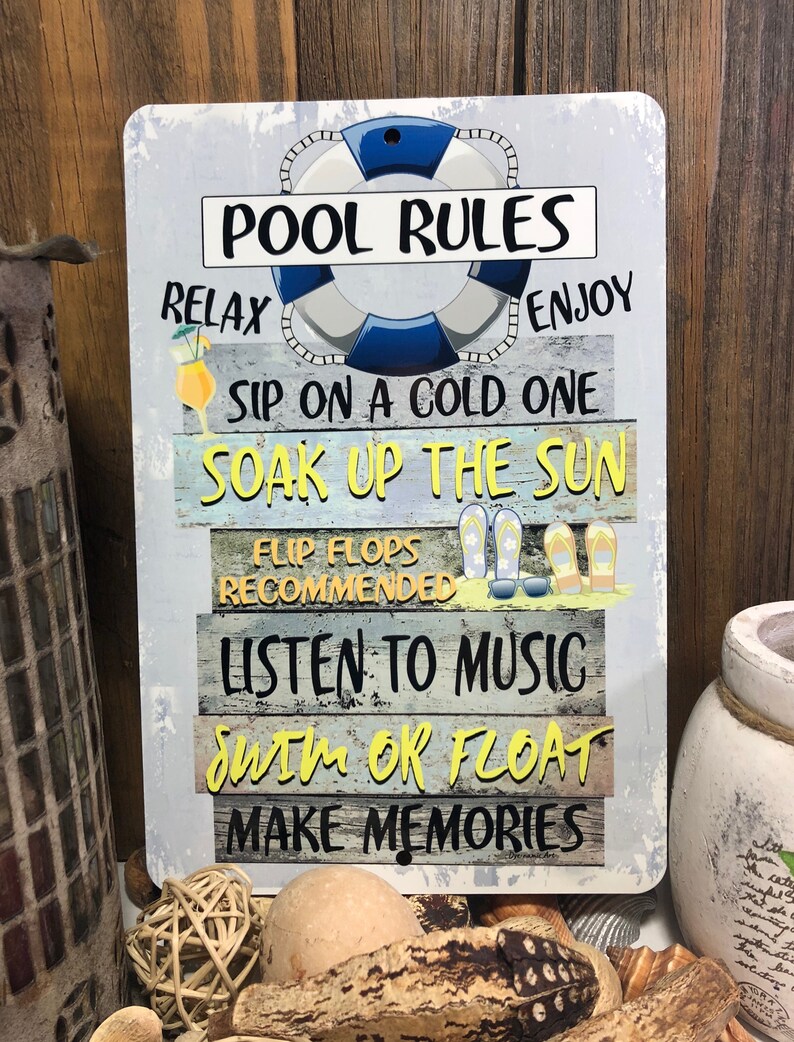 POOL RULES
RELAX
ENJOY
SIP ON A COLD ONE
SOAK UP THE SUN
FLIP FLOPS
RECOMMENDED
LISTEN TO MUSIC
SWIM OR FLOAT
MAKE MEMORIES